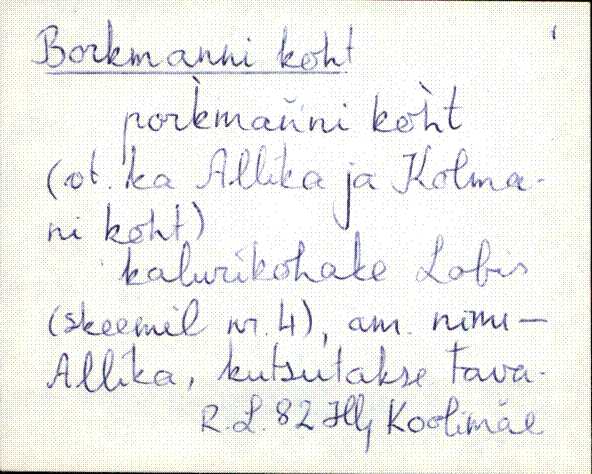 Borkmanni koht
porkmańni kòht
(vt. ka Allika ja Kolma-
ni koht)
kalurikohake Lobis
(skeemil nr. 4), am. nimi –
Allika, kutsutakse tava-
R.L. 82 Koolimäe